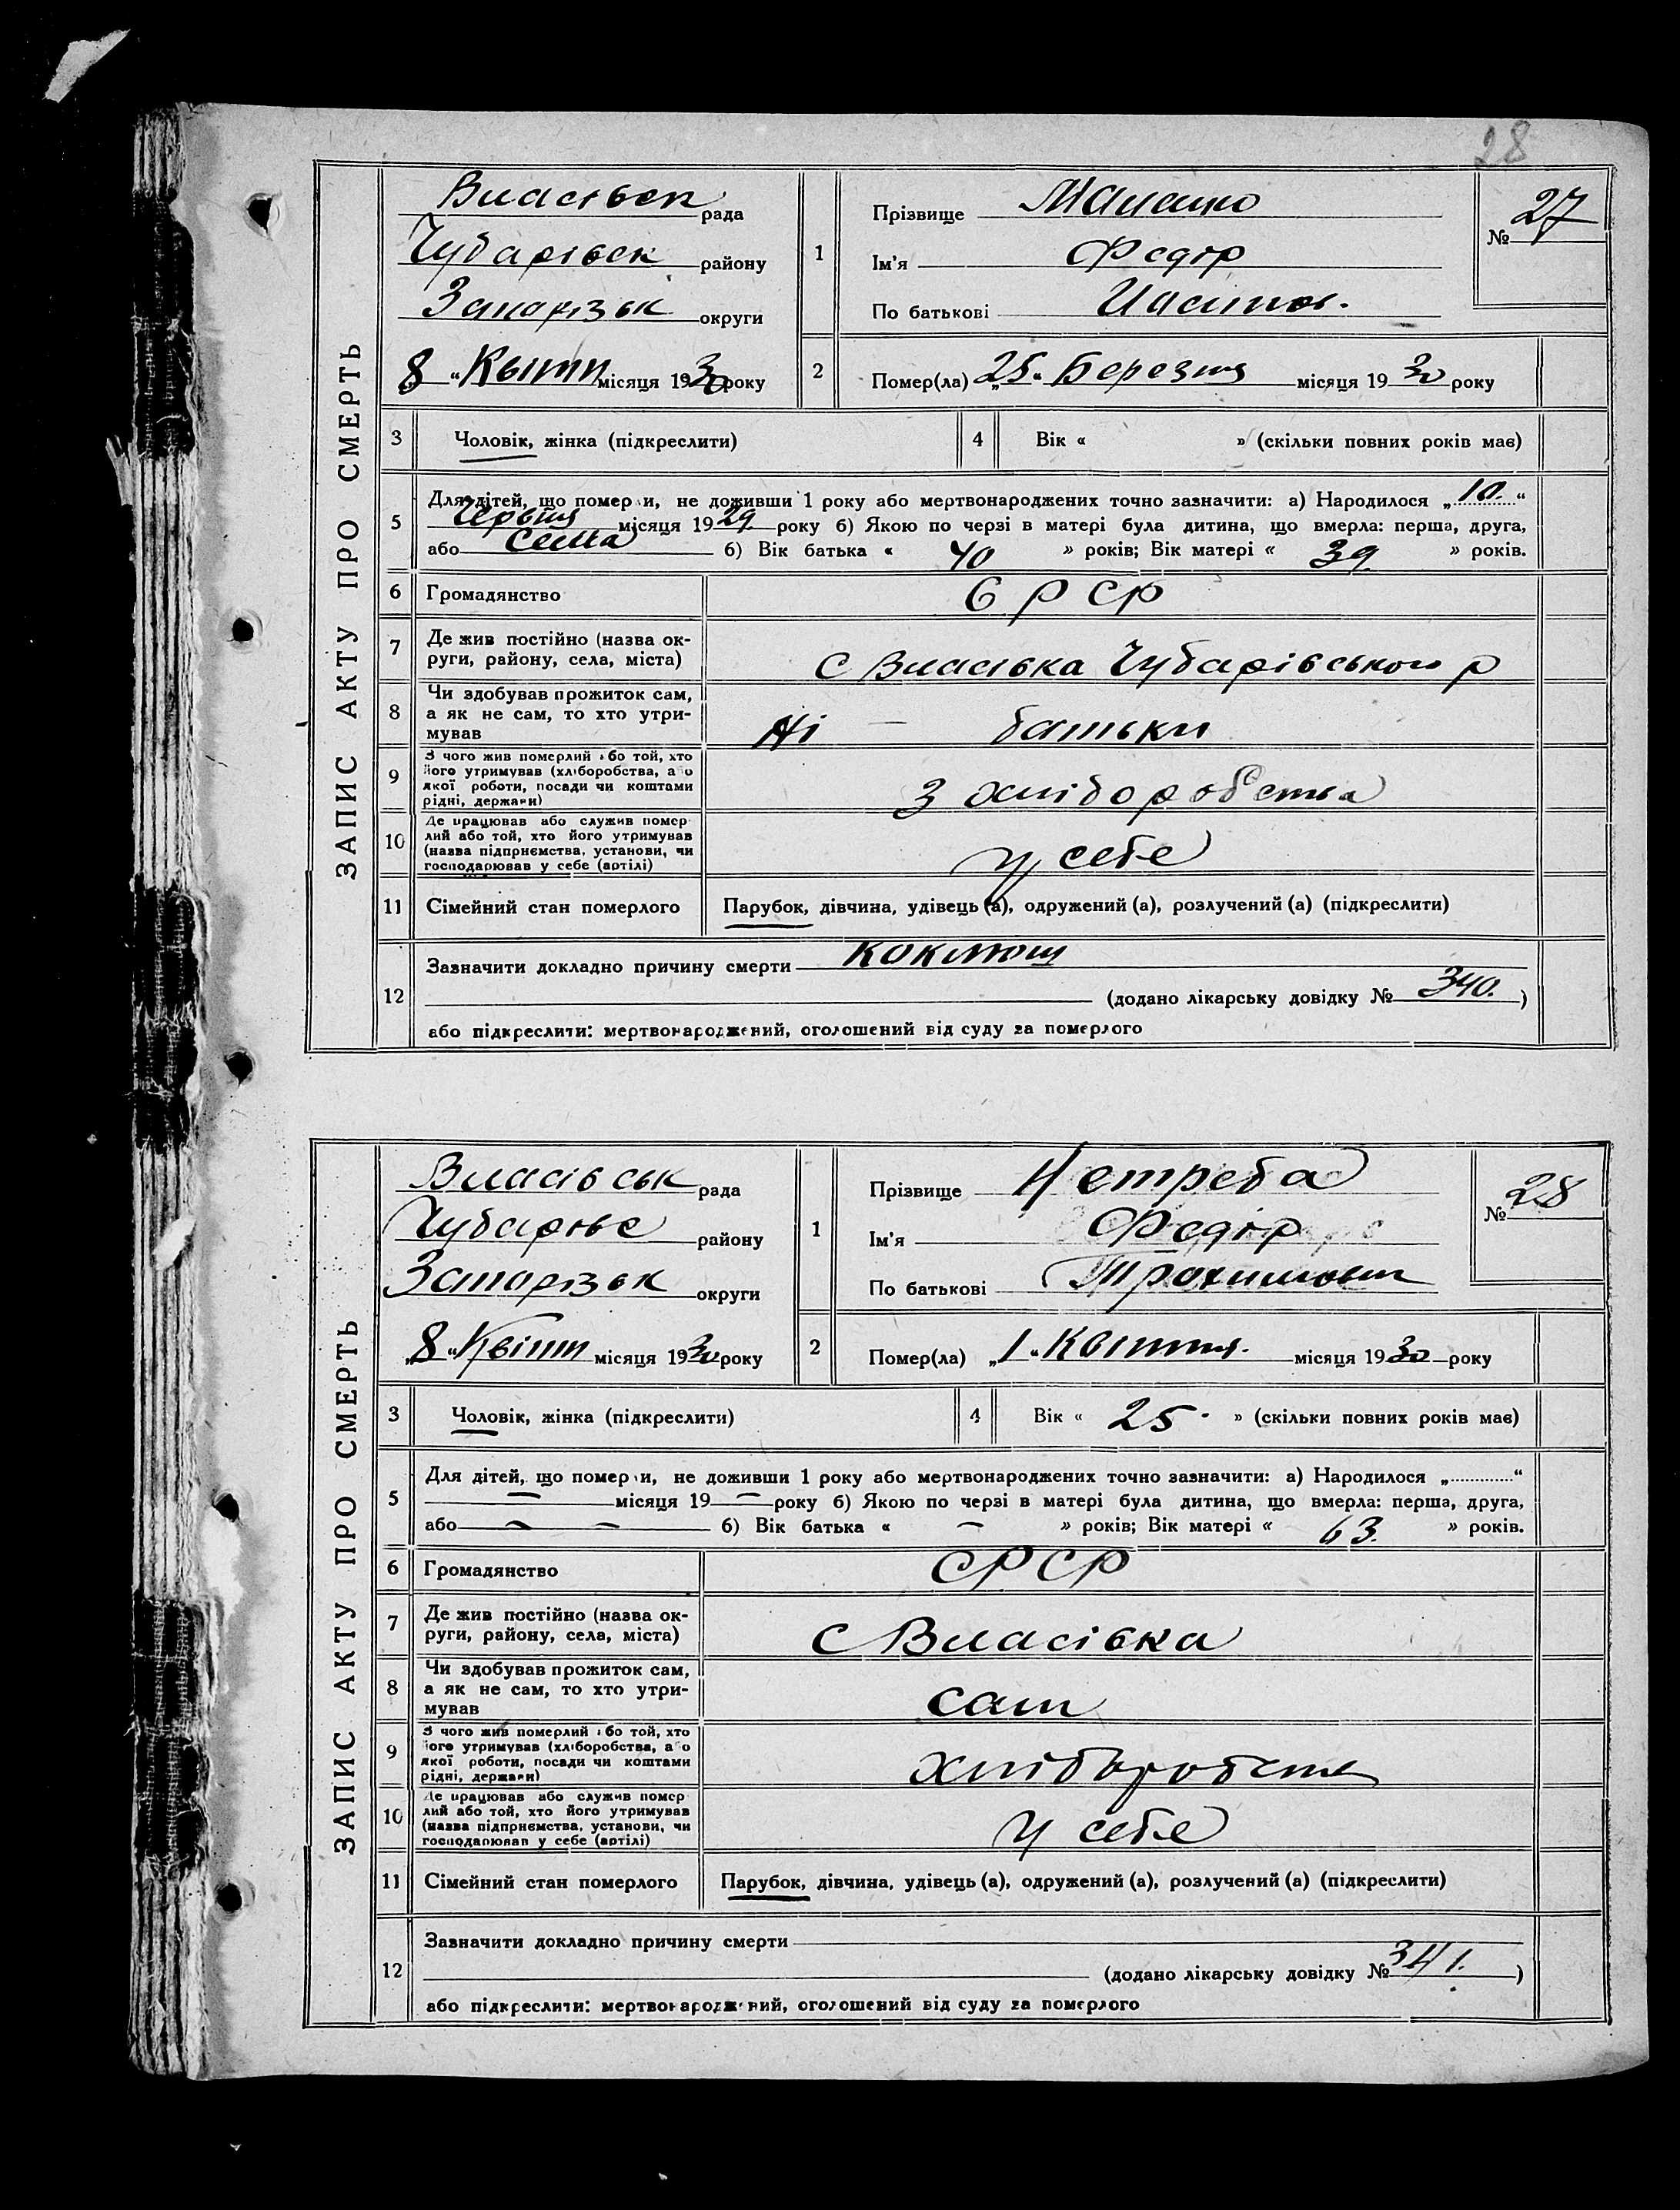 28
ЗАПИС АКТУ ПРО СМЕРТЬ
Власівськ рада
Чубарівськ району
Запорізьк округи
„8“ Квітн місяця 1930 року
1
Прізвище
Ім'я Федір
По батькові
№ 27
2 Помер(ла) „25“ Березня місяця 1930 року
3 Чоловік, жінка (підкреслити)
4 Вік « » (скільки повних років має)
5 Для дітей, що померли, не доживши 1 року або мертвонароджених точно зазначити: а) Народилося „10.“
Червня місяця 1929 року б) Якою по черзі в матері була дитина, що вмерла: перша, друга,
або сема б) Вік батька « 40 » років; Вік матері « 39 » років.
6 Громадянство СРСР
7 Де жив постійно (назва ок-
руги, району, села, міста) С Власівка Чубарівського р
8 Чи здобував прожиток сам,
а як не сам, то хто утри-
мував Ні — батьки
9 З чого жив померлий або той, хто
його утримував (хліборобства, або
якої роботи, посади чи коштами
рідні, держави) З хліборобства
10 Де працював або служив помер
лий або той, хто його утримував
(назва підприємства, установи, чи
господарював у себе (артілі) у себе
11 Сімейний стан померлого Парубок, дівчина, удівець (а), одружений (а), розлучений (а) (підкреслити)
12 Зазначити докладно причину смерти коклюш
(додано лікарську довідку № 340.)
або підкреслити: мертвонароджений, оголошений від суду за померлого
ЗАПИС АКТУ ПРО СМЕРТЬ
Власівськ рада
Чубарівс району
Запорізьк округи
„8“ Квітн місяця 1930 року
1
Прізвище Нетреба
Ім'я Федір
По батькові Трохимович
№ 28
2 Помер(ла) „1“ Квітня. місяця 1930 року
3 Чоловік, жінка (підкреслити)
4 Вік « 25 » (скільки повних років має)
5 Для дітей, що померли, не доживши 1 року або мертвонароджених точно зазначити: а) Народилося „ “
— місяця 19 — року б) Якою по черзі в матері була дитина, що вмерла: перша, друга,
або — — б) Вік батька « — » років; Вік матері « 63. » років.
6 Громадянство СРСР
7 Де жив постійно (назва ок-
руги, району, села, міста) с Власівка
8 Чи здобував прожиток сам,
а як не сам, то хто утри-
мував сам
9 З чого жив померлий або той, хто
його утримував (хліборобства, або
якої роботи, посади чи коштами
рідні, держави) хліборобств
10 Де працював або служив помер
лий або той, хто його утримував
(назва підприємства, установи, чи
господарював у себе (артілі) у себе
11 Сімейний стан померлого Парубок, дівчина, удівець (а), одружений (а), розлучений (а) (підкреслити)
12 Зазначити докладно причину смерти
(додано лікарську довідку № 341.)
або підкреслити: мертвонароджений, оголошений від суду за померлого